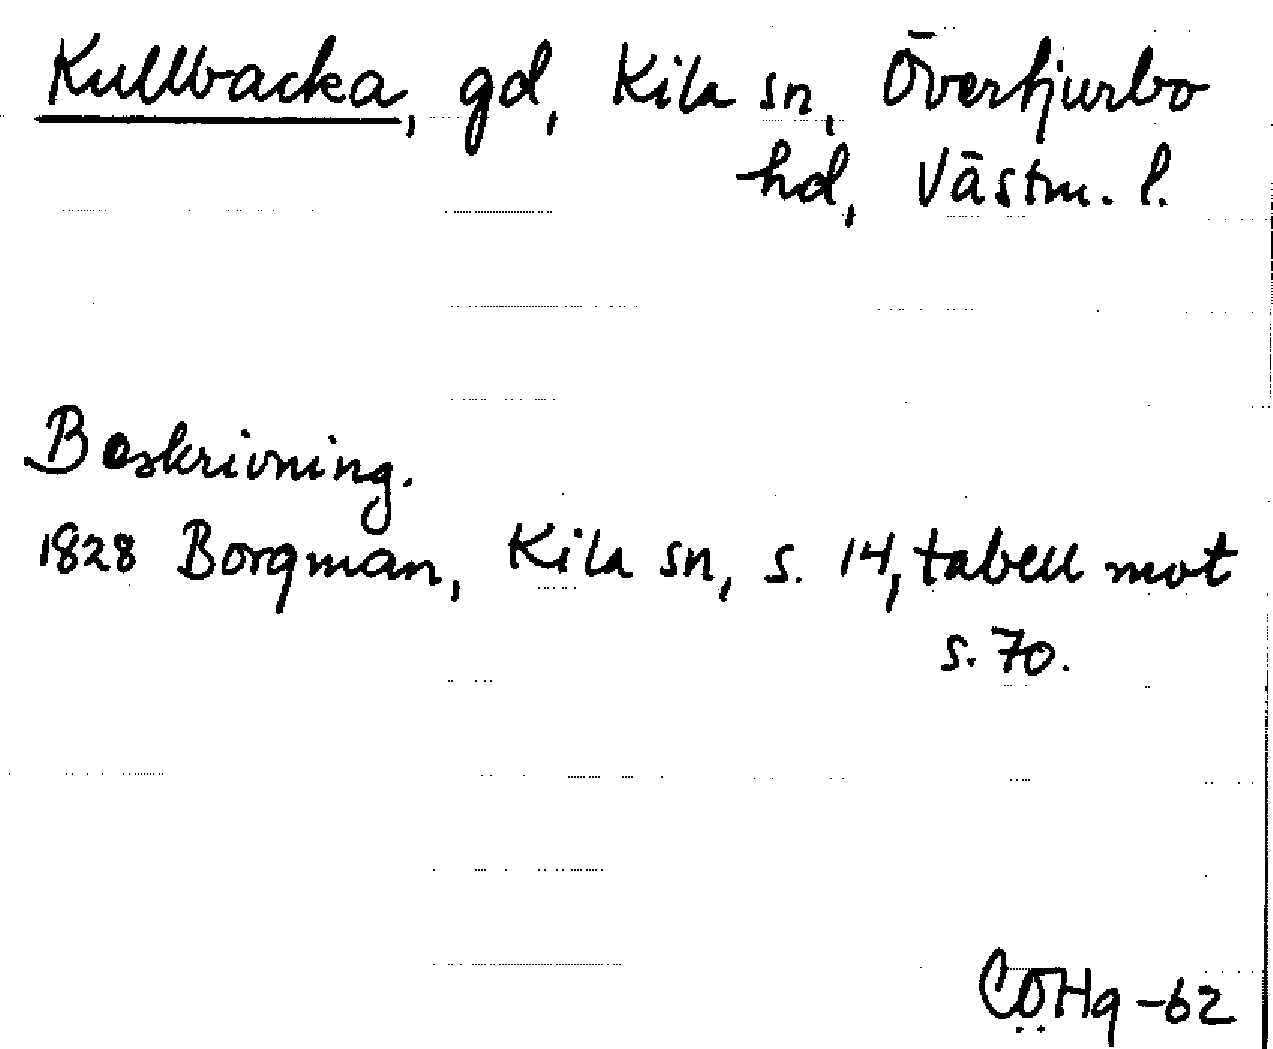 Kullbacka, gd, Kila sn, Övertjurbo
hd, Västm. l.
Beskrivning.
1828 Borgman, Kila sn, s. 14, tabell mot
s. 70.
CÖHg -62